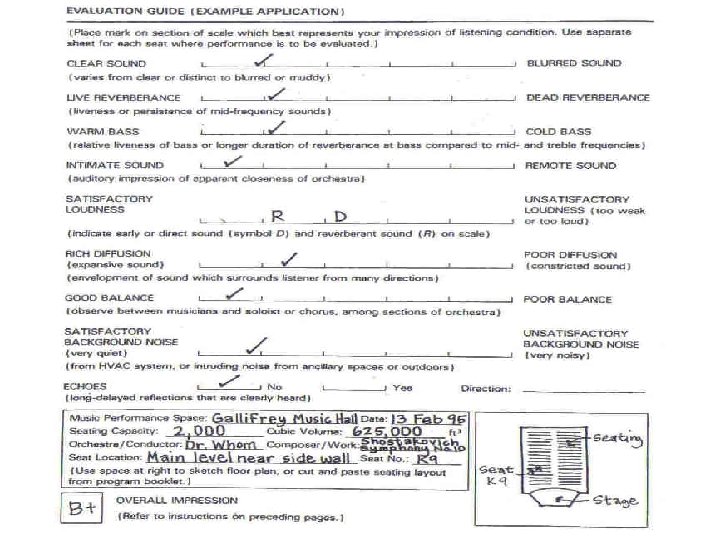 EVALUATION GUIDE (EXAMPLE APPLICATION)
(Place mark on section of scale which best represents your impression of listening condition. Use separate
sheet for each seat where performance is to be evaluated.)
CLEAR SOUND BLURRED SOUND
(varies from clear or distinct to blurred or muddy)
LIVE REVERBERANCE DEAD REVERBERANCE
(liveness or persistence of mid-frequency sounds)
WARM BASS COLD BASS
(relative liveness of bass or longer duration of reverberance at bass compared to mid- and treble frequencies)
INTIMATE SOUND REMOTE SOUND
(auditory impression of apparent closeness of orchestra)
SATISFACTORY UNSATISFACTORY
LOUDNESS R D LOUDNESS (too weak
or too loud)
(indicate early or direct sound (symbol D) and reverberant sound (R) on scale)
RICH DIFFUSION POOR DIFFUSION
(expansive sound) (constricted sound)
(envelopment of sound which surrounds listener from many directions)
GOOD BALANCE POOR BALANCE
(observe between musicians and soloist or chorus, among sections of orchestra)
SATISFACTORY UNSATISFACTORY
BACKGROUND NOISE BACKGROUND NOISE
(very quiet) (very noisy)
(from HVAC system, or intruding noise from ancillary spaces or outdoors)
ECHOES No Yes Direction:
(long-delayed reflections that are clearly heard)
Music Performance Space: Gallifrey Music Hall Date: 13 Feb 95
Seating Capacity: 2,000 Cubic Volume: 625,000 ft³
Orchestra/Conductor: Dr. Whom Composer/Work: Shostakovich Symphony No. 10
Seat Location: Main level near side wall Seat No.: K9
(Use space at right to sketch floor plan, or cut and paste seating layout
from program booklet.)
Seating
Seat
K9
Stage
B+ OVERALL IMPRESSION
(Refer to instructions on preceding pages.)